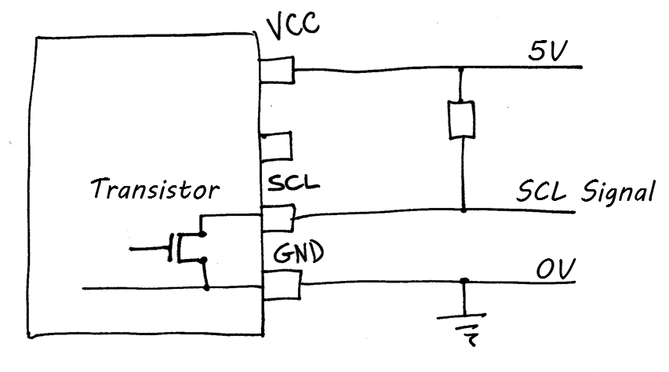 VCC
5V
Transistor
SCL
SCL Signal
GND
0V